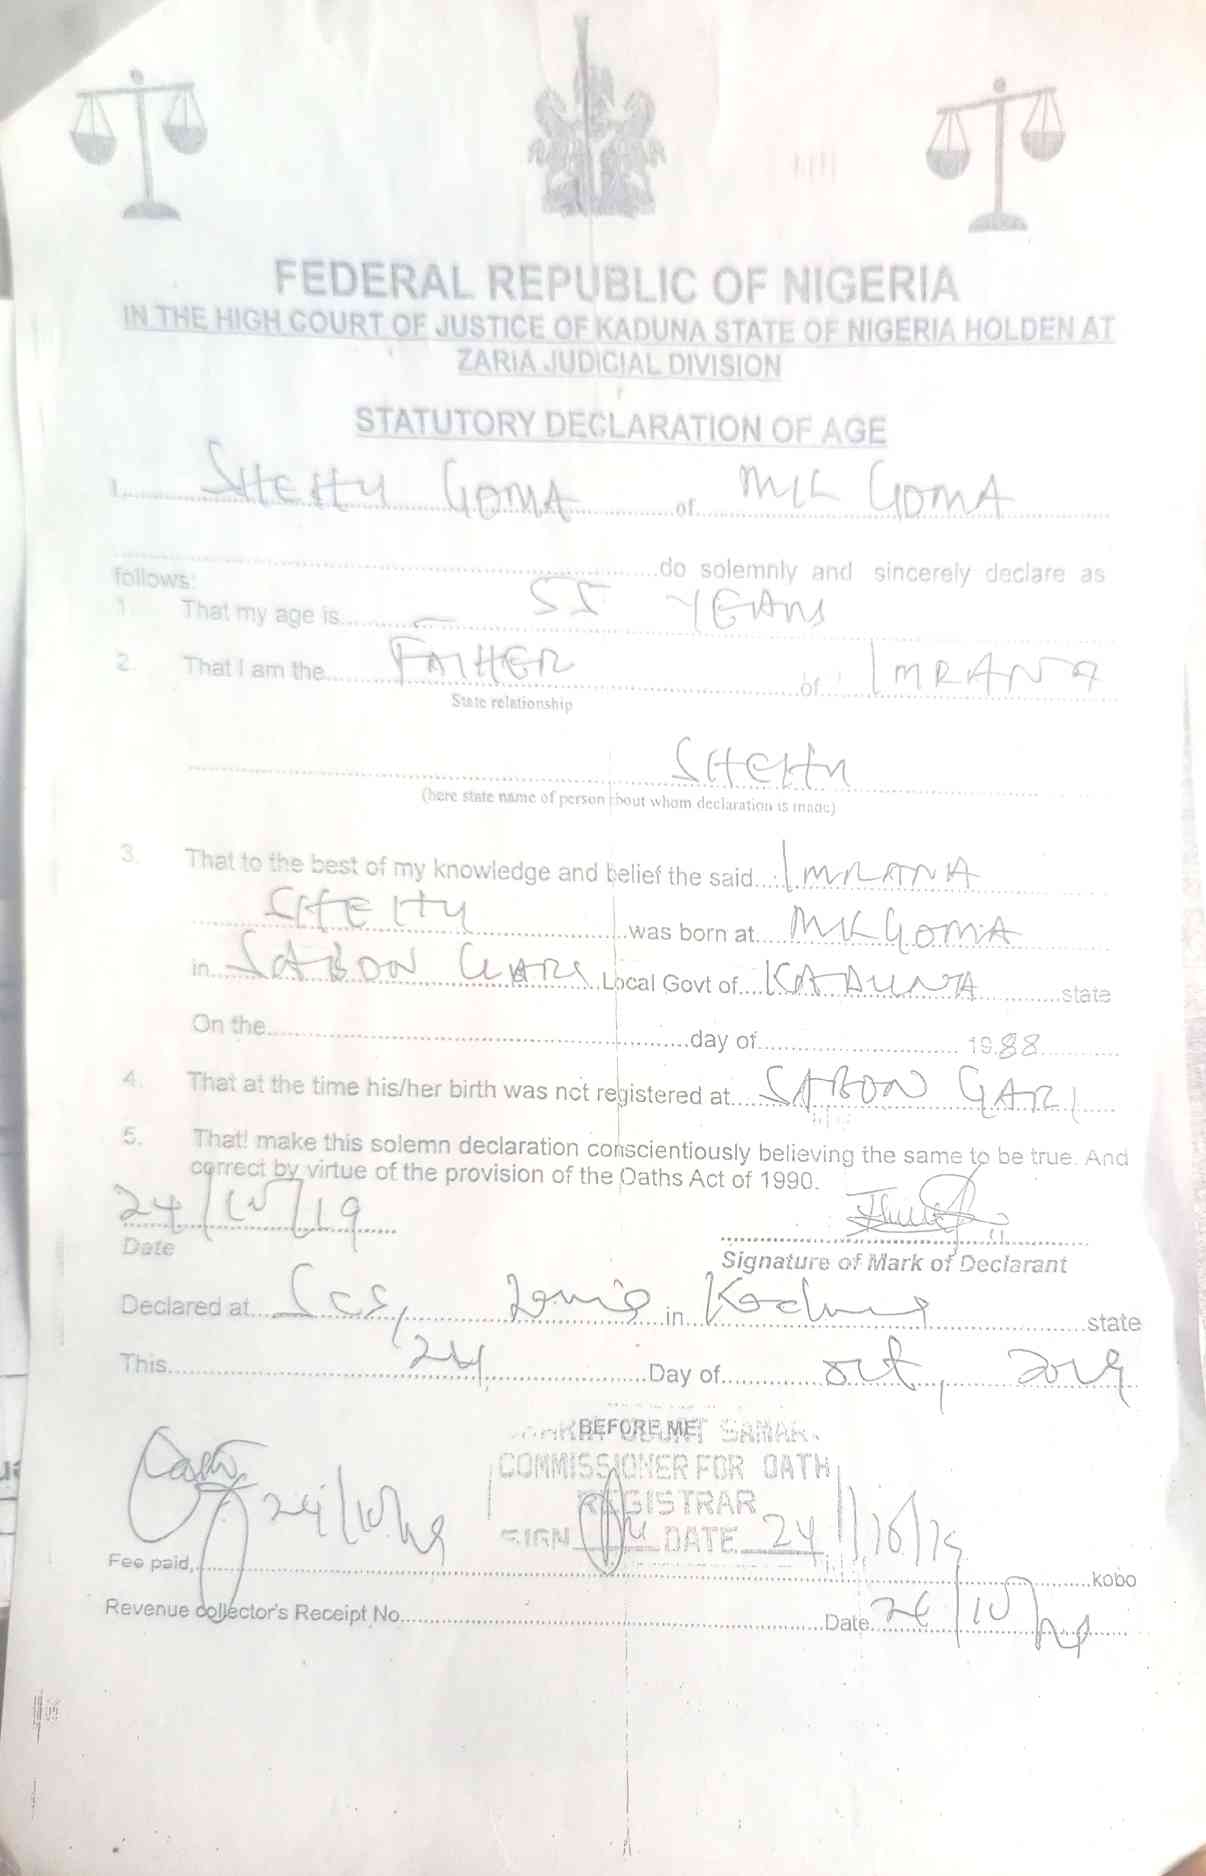 FEDERAL REPUBLIC OF NIGERIA
IN THE HIGH COURT OF JUSTICE OF KADUNA STATE OF NIGERIA HOLDEN AT
ZARIA JUDICIAL DIVISION
STATUTORY DECLARATION OF AGE
I SHEHU GOMA of MKK GOMA
do solemnly and sincerely declare as
follows:
1. That my age is 55 YEARS
2. That I am the FATHER of IMRANA
State relationship
SHEHU
(here state name of person about whom declaration is made)
3. That to the best of my knowledge and belief the said IMRANA
SHEHU was born at MKGOMA
in SABON GARI Local Govt of KADUNA state
On the day of 1988
4. That at the time his/her birth was not registered at SABON GARI
5. That! make this solemn declaration conscientiously believing the same to be true. And
correct by virtue of the provision of the Oaths Act of 1990.
24/10/19
Date
Signature of Mark of Declarant
Declared at in Kaduna state
This 24 Day of oct, 2019
BEFORE ME
COMMISSIONER FOR OATH
REGISTRAR
24/10/19 SIGN DATE 24/10/19
Fee paid, kobo
Revenue collector's Receipt No. Date 24/10/19